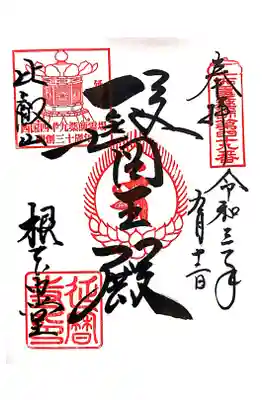 奉拝
令和三年
九月十二日
醫王殿
比叡山
根本中堂
西国四十九薬師霊場